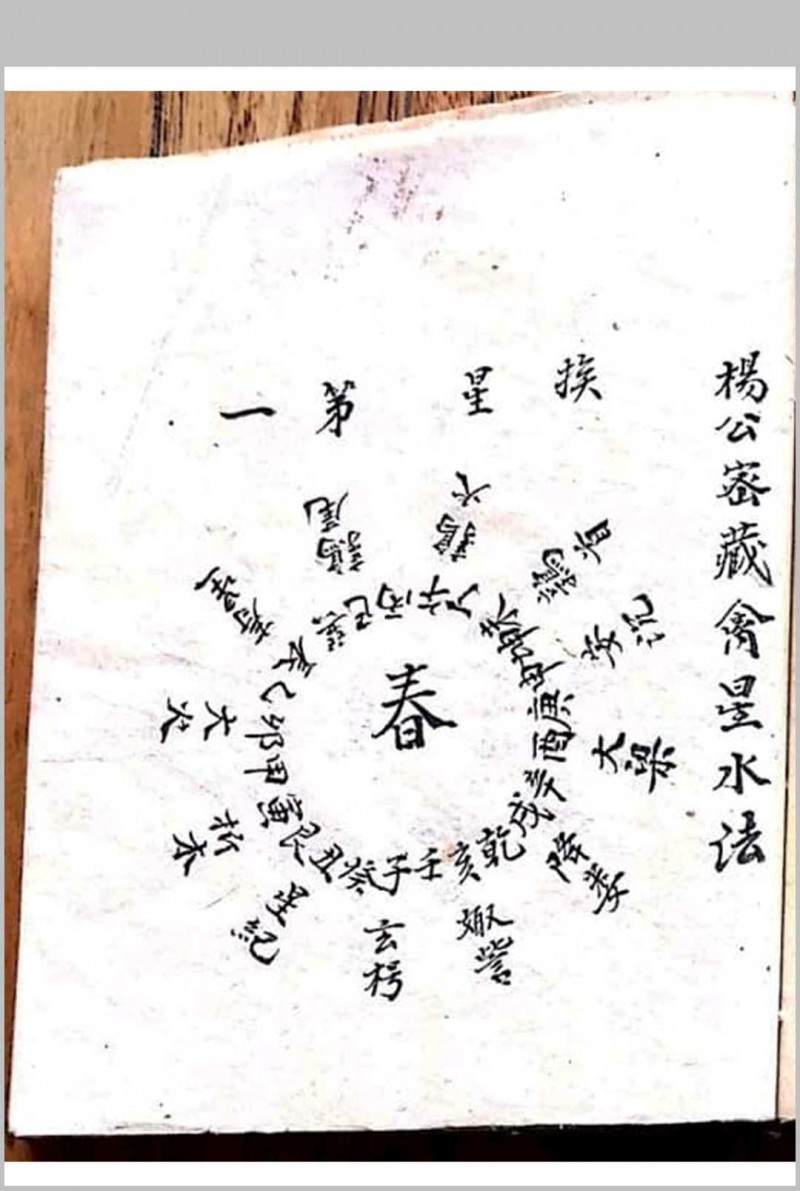 楊公密藏禽星水法
挨星第一
春
壬子癸丑艮寅甲卯乙辰巽巳丙午丁未坤申庚酉辛戌乾亥
玄枵
星紀
析木
大火
寿星
鶉尾
鶉火
鶉首
实沉
大梁
降娄
娵訾